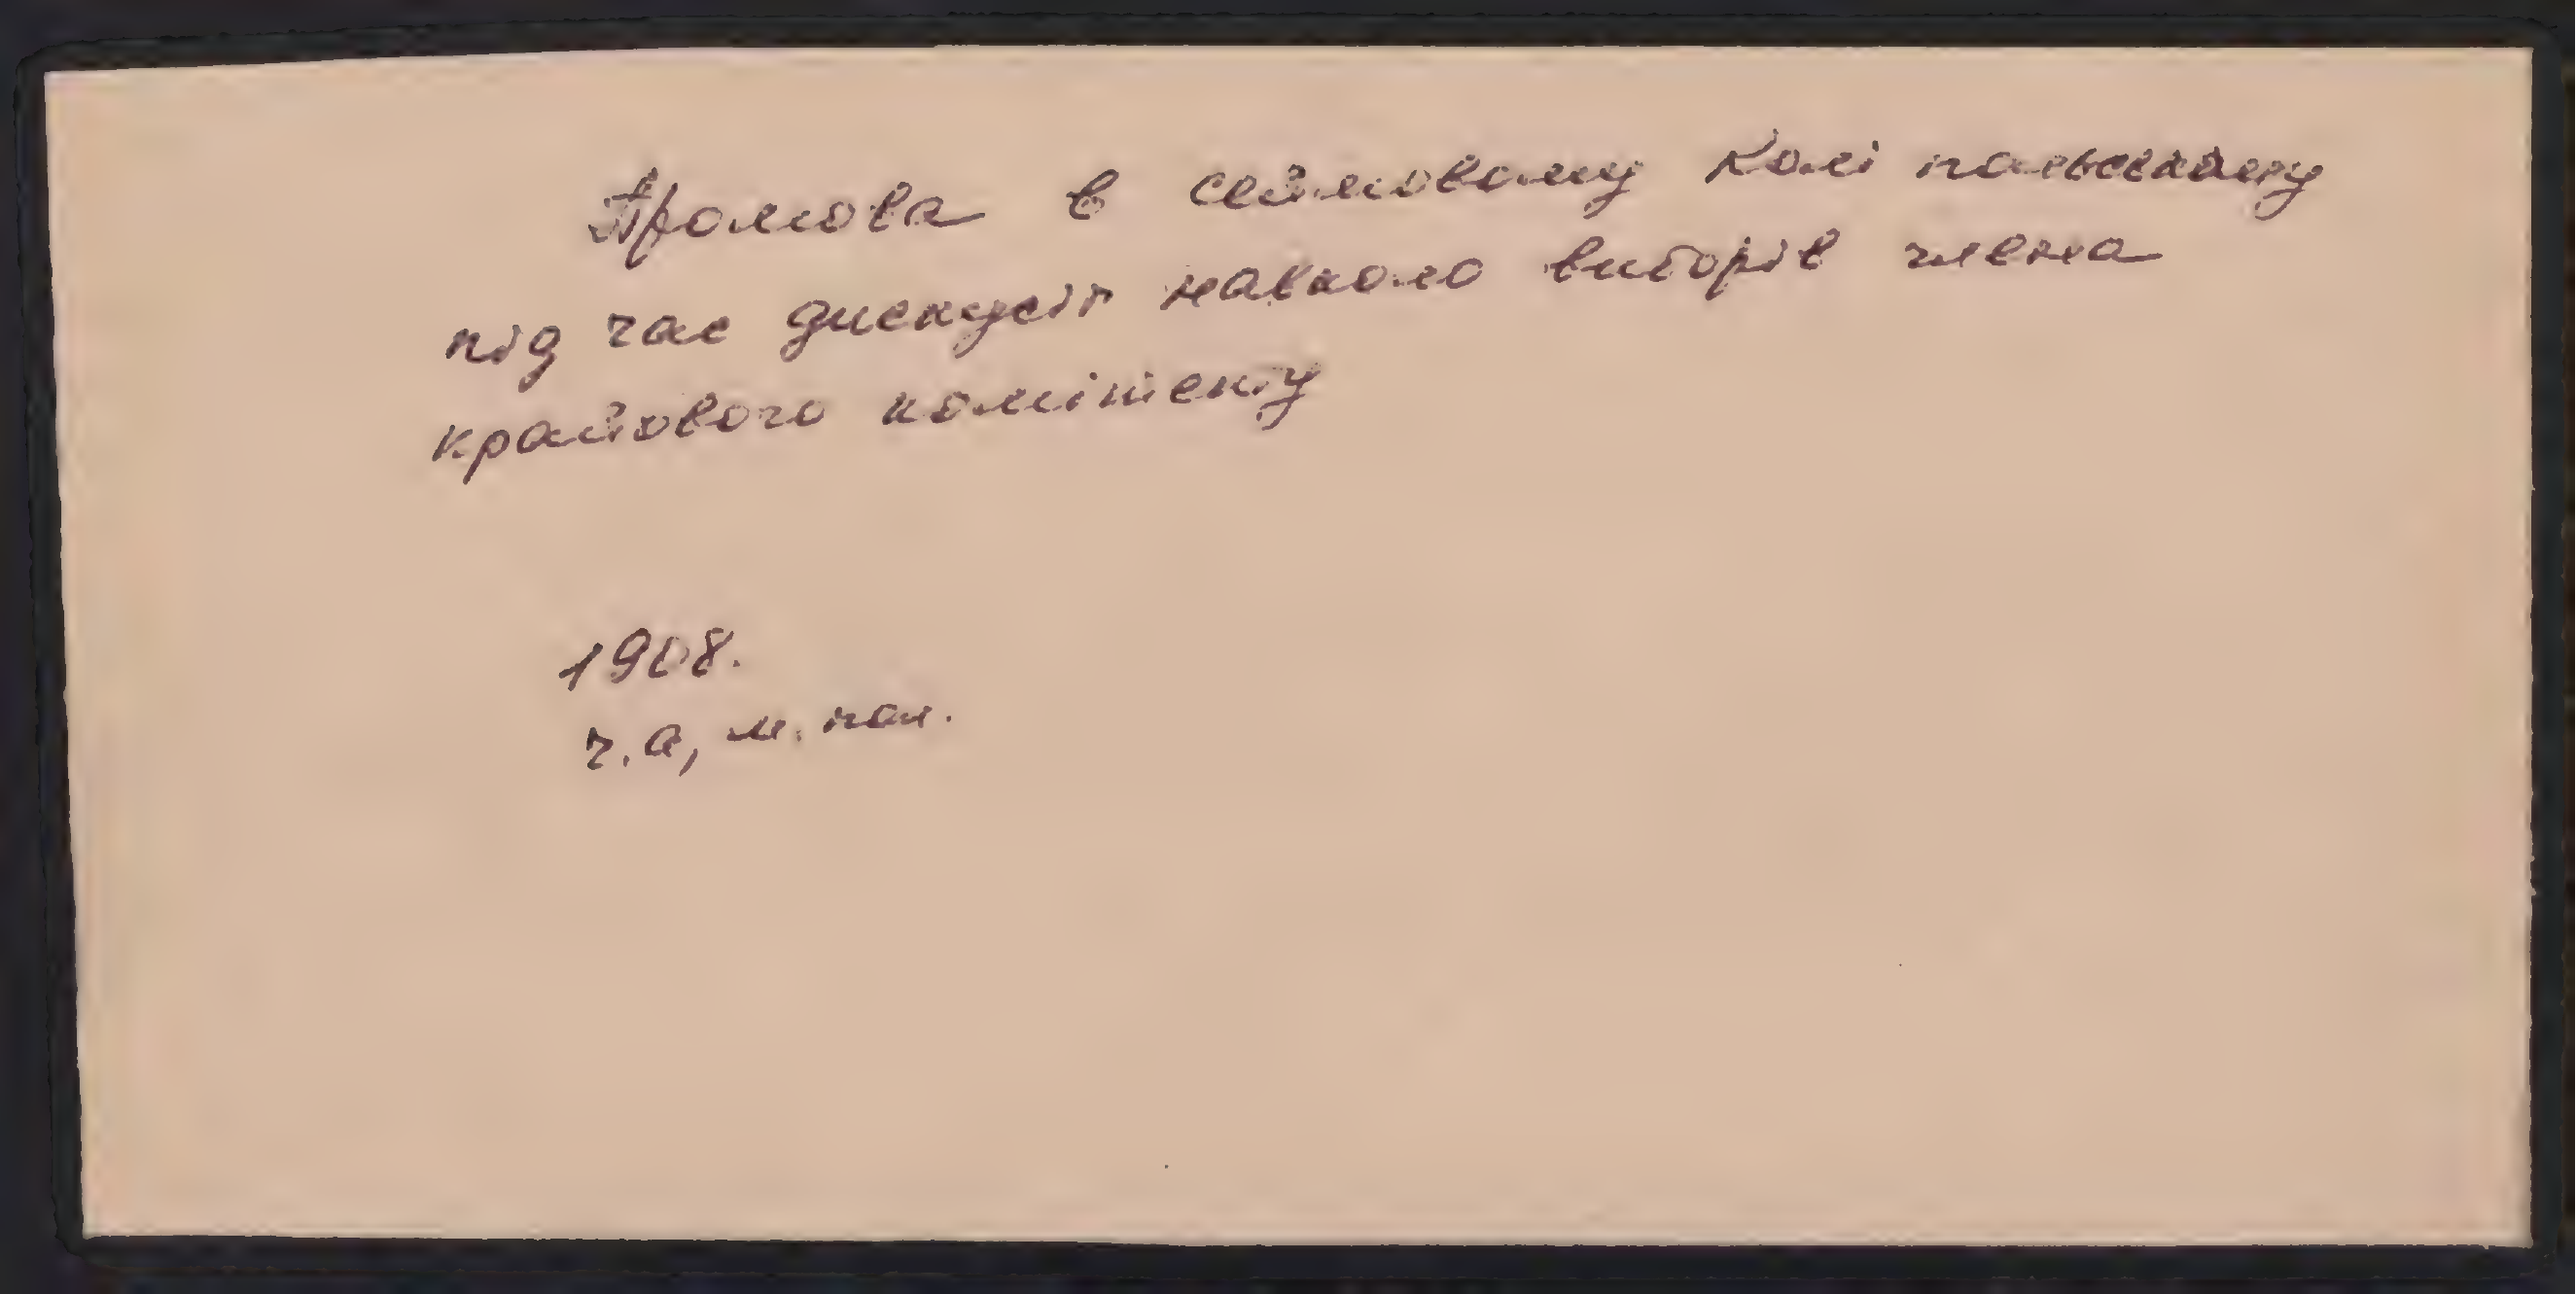 Промова в сеймовому Колі польському
під час дискусії навколо виборів члена
крайового комітету
1908.
ч. а, м. пол.